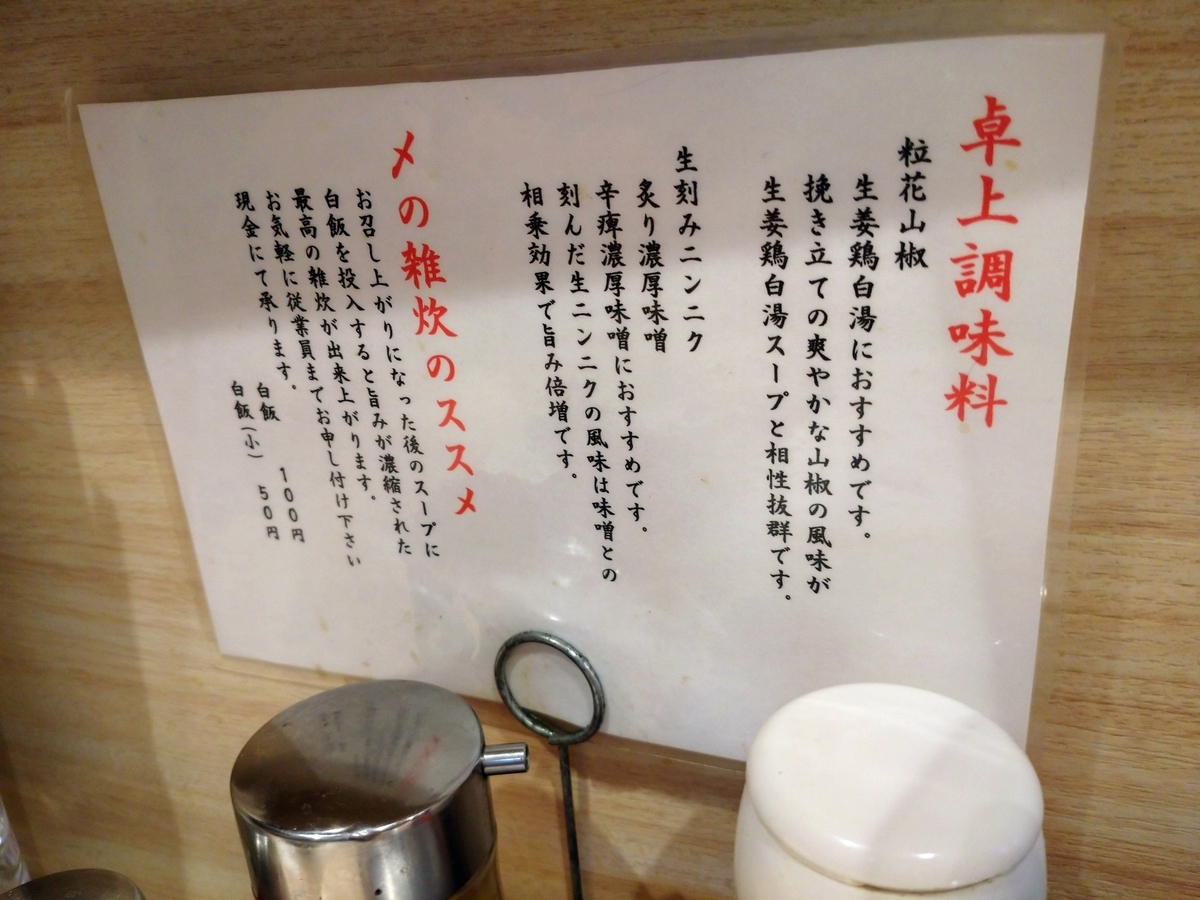 卓上調味料
粒花山椒
生姜鶏白湯におすすめです。
挽き立ての爽やかな山椒の風味が
生姜鶏白湯スープと相性抜群です。
生刻みニンニク
炙り濃厚味噌
辛痺濃厚味噌におすすめです。
刻んだ生ニンニクの風味は味噌との
相乗効果で旨み倍増です。
〆の雑炊のススメ
お召し上がりになった後のスープに
白飯を投入すると旨みが濃縮された
最高の雑炊が出来上がります。
お気軽に従業員までお申し付け下さい
現金にて承ります。
白飯 100円
白飯(小) 50円